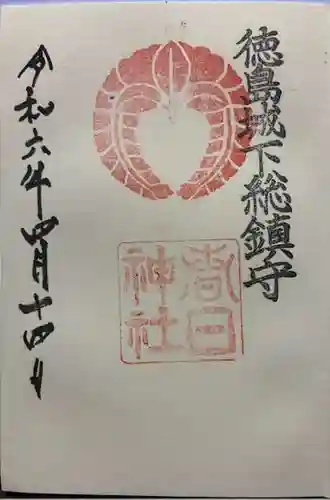 徳島城下総鎮守
春日
神社
令和六年四月十四日